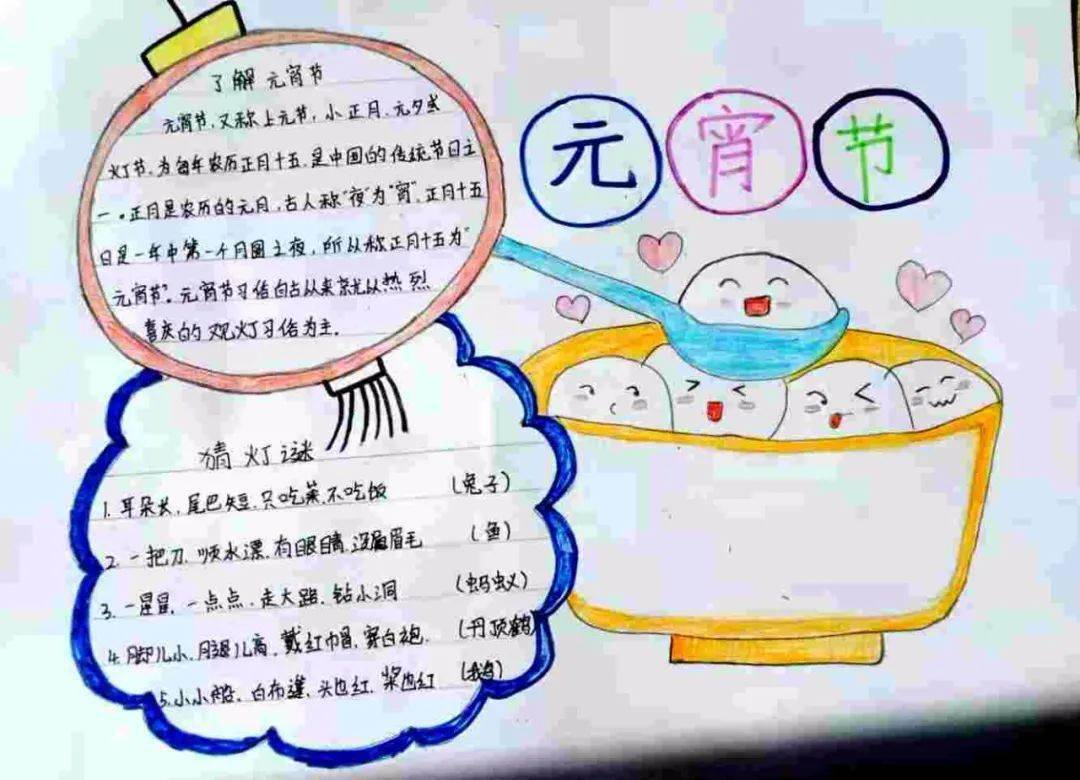 元宵节
了解 元宵节
元宵节,又称上元节,小正月、元夕或
灯节,为每年农历正月十五,是中国的传统节日之
一。正月是农历的元月,古人称"夜"为"宵",正月十五
日是一年中第一个月圆之夜,所以称正月十五为"
元宵节"。元宵节习俗自古以来就以热烈
喜庆的观灯习俗为主.
猜灯谜
1.耳朵长,尾巴短,只吃菜,不吃饭 (兔子)
2.一把刀,顺水漂,有眼睛,没眉毛 (鱼)
3.一星星,一点点,走大路,钻小洞 (蚂蚁)
4.脚儿小,腿儿高,戴红帽,穿白袍. (丹顶鹤)
5.小小船,白布篷,头也红,桨也红 (鹅)